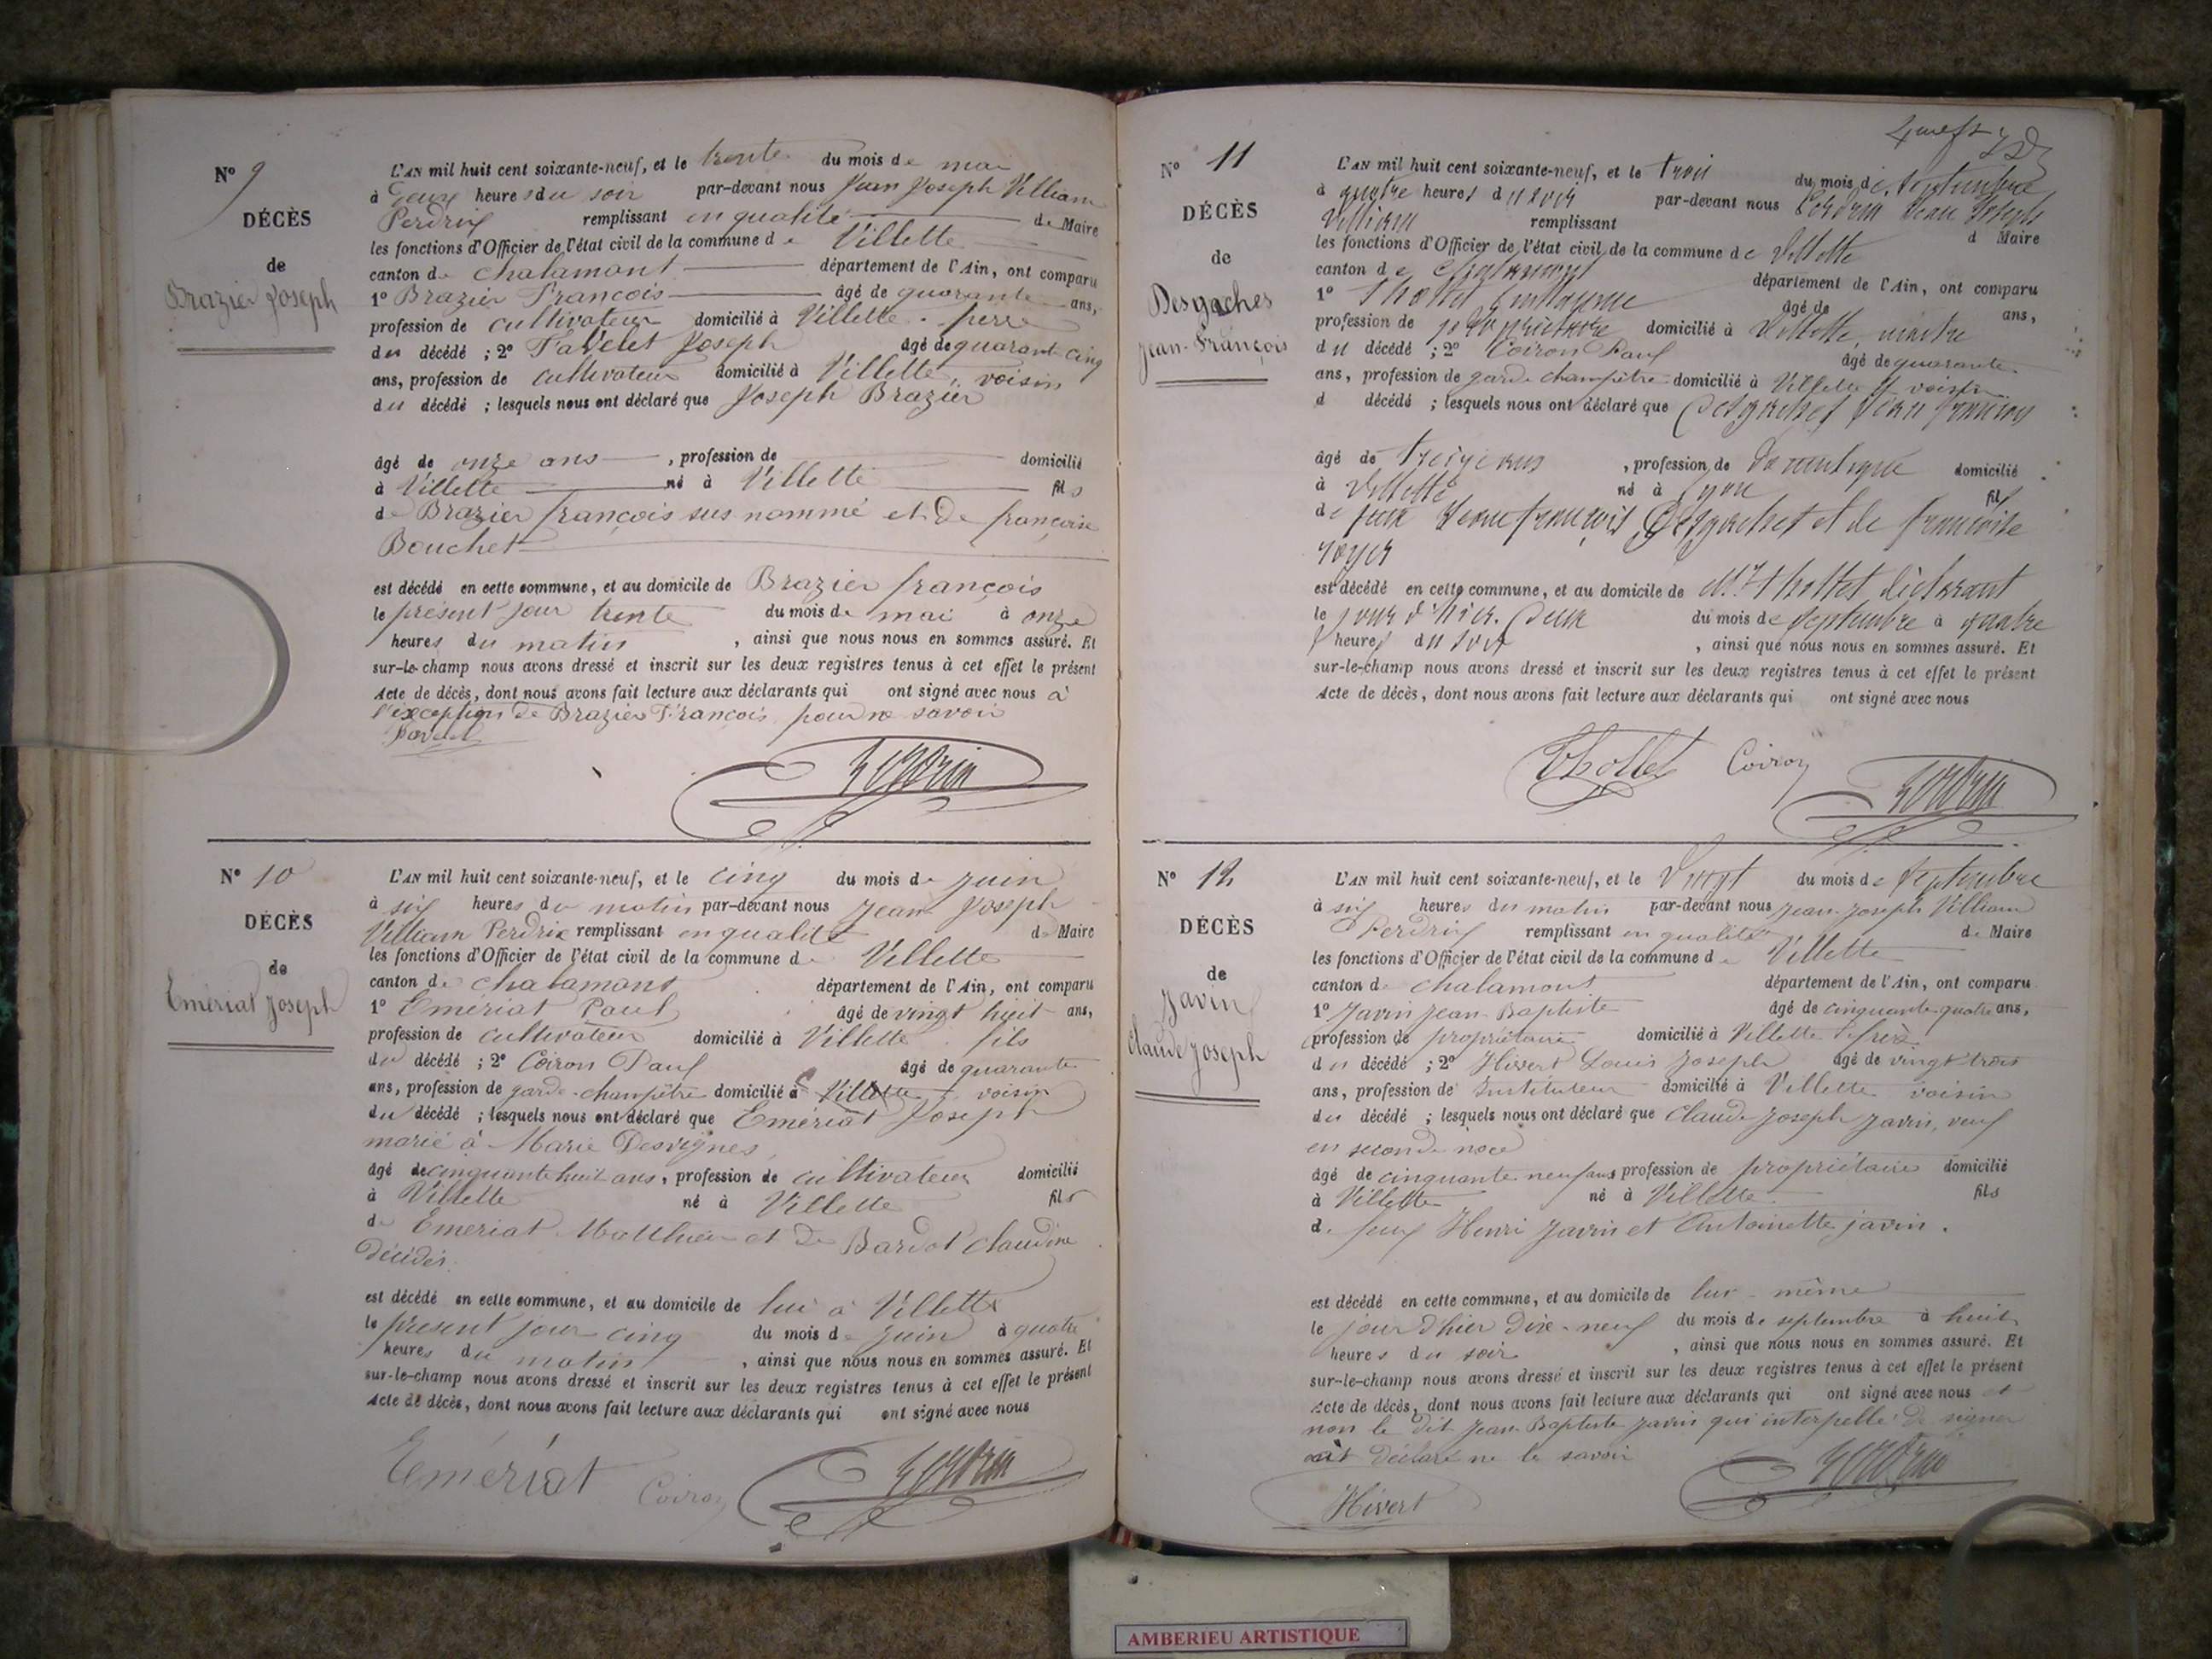 Nº 9
DÉCÈS
de
Brazier Joseph
L'AN mil huit cent soixante-neuf, et le trente du mois de mai
à deux heures du soir par-devant nous Jean Joseph Villiam
Perdrix remplissant en qualité de Maire
les fonctions d'Officier de l'état civil de la commune de Villette
canton de Chalamont département de l'Ain, ont comparu
1º Brazier François âgé de quarante ans,
profession de cultivateur domicilié à Villette. père
du décédé ; 2º Joseph âgé de quarante cinq
ans, profession de cultivateur domicilié à Villette, voisin
du décédé ; lesquels nous ont déclaré que Joseph Brazier
âgé de onze ans , profession de domicilié
à Villette né à Villette fils
de Brazier françois sus nommé et de françoise
Bouchet
est décédé en cette commune, et au domicile de Brazier françois
le présent jour trente du mois de mai à onze
heures du matin , ainsi que nous nous en sommes assuré. Et
sur-le-champ nous avons dressé et inscrit sur les deux registres tenus à cet effet le présent
Acte de décès, dont nous avons fait lecture aux déclarants qui ont signé avec nous à
l'exception de Brazier François pour ne savoir
Perdrix
Nº 10
DÉCÈS
de
Emériat Joseph
L'AN mil huit cent soixante-neuf, et le cinq du mois de juin
à six heures du matin par-devant nous Jean Joseph
Villiam Perdrix remplissant en qualité de Maire
les fonctions d'Officier de l'état civil de la commune de Villette
canton de Chalamont département de l'Ain, ont comparu
1º Emériat Paul âgé de vingt huit ans,
profession de cultivateur domicilié à Villette fils
du décédé ; 2º Coiron Paul âgé de quarante
ans, profession de garde-champêtre domicilié à Villette voisin
du décédé ; lesquels nous ont déclaré que Emériat Joseph
marié à Marie Desvignes
âgé de cinquante huit ans, profession de cultivateur domicilié
à Villette né à Villette fils
de Emeriat Matthieu et de Bardot Claudine
décédés.
est décédé en cette commune, et au domicile de lui à Villette
le présent jour cinq du mois de juin à quatre
heures du matin , ainsi que nous nous en sommes assuré. Et
sur-le-champ nous avons dressé et inscrit sur les deux registres tenus à cet effet le présent
Acte de décès, dont nous avons fait lecture aux déclarants qui ont signé avec nous
Emériat Coiron Perdrix
Nº 11
DÉCÈS
de
Desgaches
Jean-François
L'AN mil huit cent soixante-neuf, et le trois du mois de septembre
à quatre heures du soir par-devant nous Perdrix Jean Joseph
Villiam remplissant d Maire
les fonctions d'Officier de l'état civil de la commune de Villette
canton de Chalamont département de l'Ain, ont comparu
1º Thollet Guillaume âgé de ans,
profession de propriétaire domicilié à Villette, maitre
du décédé ; 2º Coiron Paul âgé de quarante
ans, profession de garde champêtre domicilié à Villette voisin
d décédé ; lesquels nous ont déclaré que Desgaches Jean françois
âgé de treize ans , profession de domestique domicilié
à Villette né à Lyon fil
de feux Jean françois Desgaches et de francoise
royer
est décédé en cette commune, et au domicile de Mr Thollet déclarant
le jour d'hier. deux du mois de septembre à quatre
heures du soir , ainsi que nous nous en sommes assuré. Et
sur-le-champ nous avons dressé et inscrit sur les deux registres tenus à cet effet le présent
Acte de décès, dont nous avons fait lecture aux déclarants qui ont signé avec nous
Thollet Coiron Perdrix
Nº 12
DÉCÈS
de
Javin
Claude Joseph
L'AN mil huit cent soixante-neuf, et le Vingt du mois de Septembre
à six heures du matin par-devant nous Jean-Joseph Villiam
Perdrix remplissant en qualité de Maire
les fonctions d'Officier de l'état civil de la commune de Villette
canton de Chalamont département de l'Ain, ont comparu
1º Javin Jean-Baptiste âgé de cinquante quatre ans,
profession de propriétaire domicilié à Villette frère
du décédé ; 2º Hivert Louis Joseph âgé de vingt trois
ans, profession de Instituteur domicilié à Villette voisin
du décédé ; lesquels nous ont déclaré que Claude Joseph Javin, veuf
en seconde noce
âgé de cinquante neuf ans profession de propriétaire domicilié
à Villette né à Villette fils
de feux Henri Javin et Antoinette javin.
est décédé en cette commune, et au domicile de lui-même
le jour d'hier dix-neuf du mois de septembre à huit
heures du soir , ainsi que nous nous en sommes assuré. Et
sur-le-champ nous avons dressé et inscrit sur les deux registres tenus à cet effet le présent
Acte de décès, dont nous avons fait lecture aux déclarants qui ont signé avec nous et
non le dit Jean-Baptiste Javin qui interpellé de signer
ait déclaré ne le savoir
Hivert Perdrix
AMBERIEU ARTISTIQUE